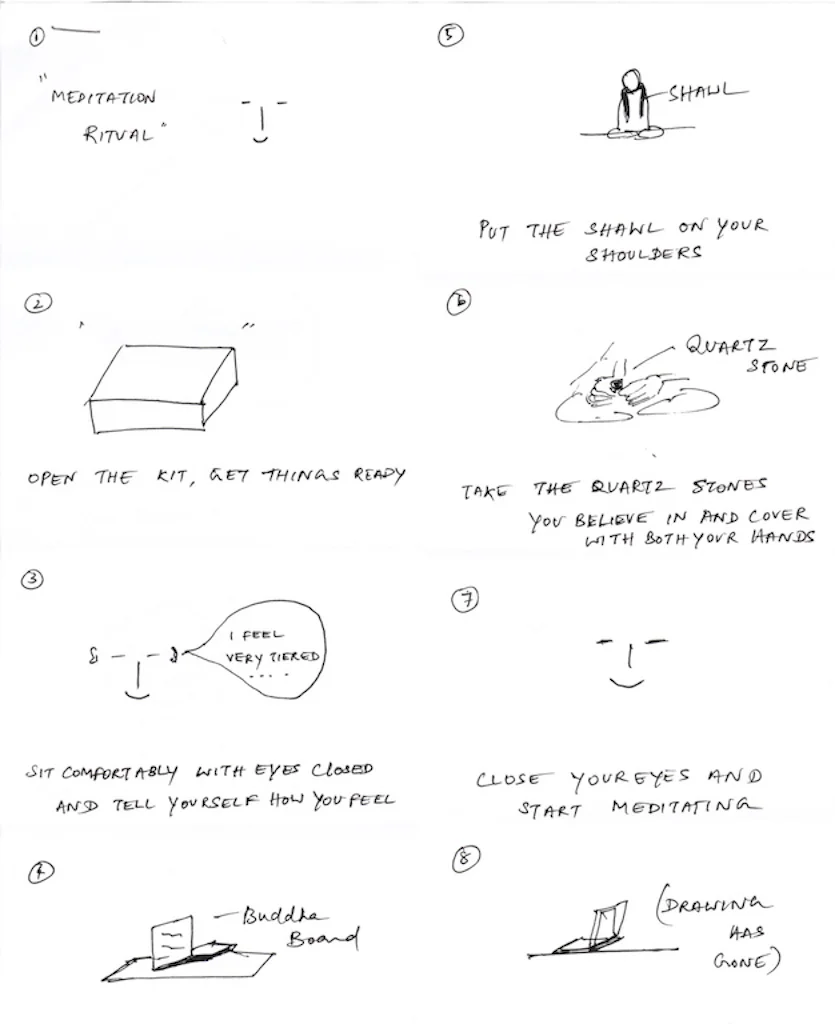 1
"MEDITATION
RITUAL"
2
OPEN THE KIT, GET THINGS READY
3
I FEEL
VERY TIERED
....
SIT COMFORTABLY WITH EYES CLOSED
AND TELL YOURSELF HOW YOU FEEL
4
Buddha
Board
5
SHAWL
PUT THE SHAWL ON YOUR
SHOULDERS
6
QUARTZ
STONE
TAKE THE QUARTZ STONES
YOU BELIEVE IN AND COVER
WITH BOTH YOUR HANDS
7
CLOSE YOUR EYES AND
START MEDITATING
8
(DRAWING
HAS
GONE)